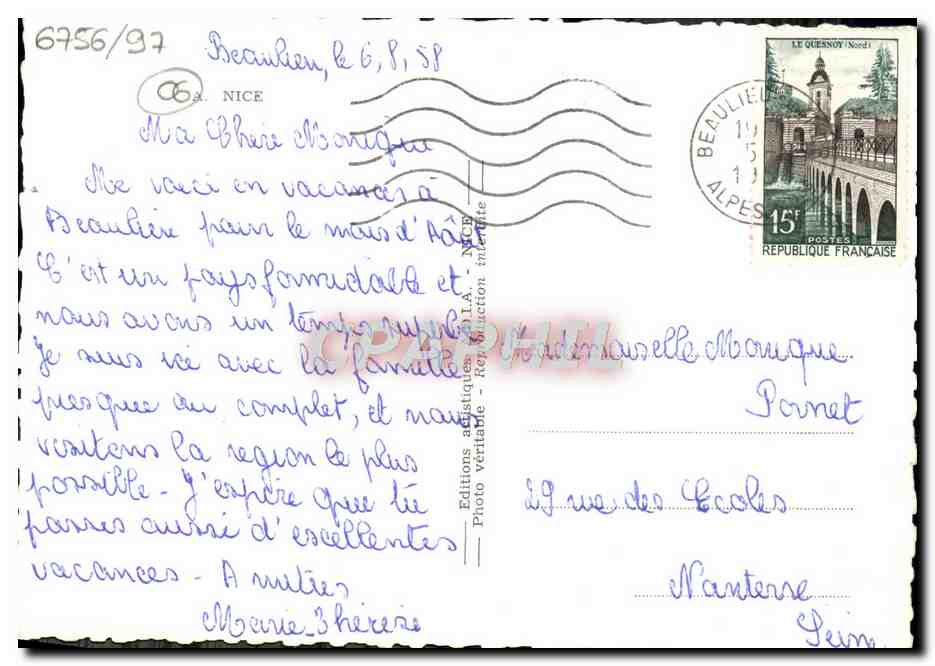 6756/97
Beaulieu, le 6, 8, 58
06
A. NICE
LE QUESNOY (Nord)
BEAULIEU
19
5
19
ALPES
15F
POSTES
REPUBLIQUE FRANÇAISE
Ma Chère Monique
Me voici en vacances à
Beaulieu pour le mois d'Août
C'est un pays formidable et
nous avons un temps superbe
Je suis ici avec la famille
presque au complet, et nous
visitons la region le plus
possible - J'espère que tu
passes aussi d'excellentes
vacances - Amitiés
Marie-Thérèse
Editions artistiques - NICE
Photo véritable - Reproduction interdite
CPAPHIL
Mademoiselle Monique
Pornet
29 rue des Ecoles
Nanterre
Seine